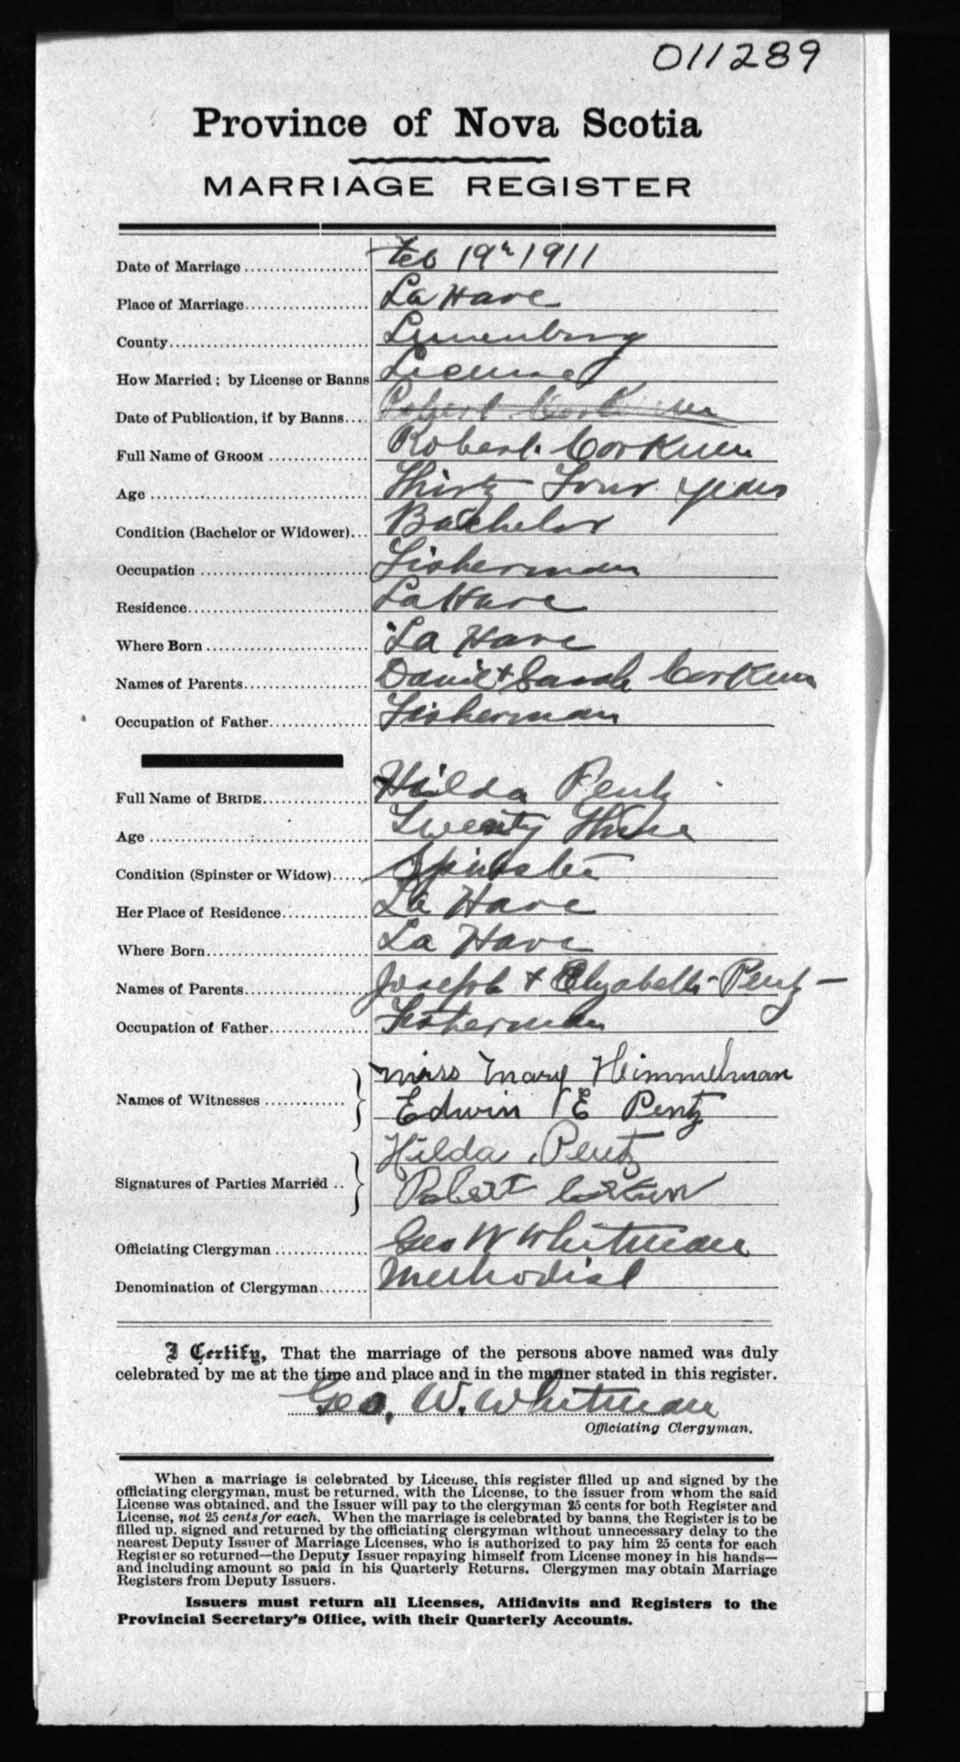 011289
Province of Nova Scotia
MARRIAGE REGISTER
Date of Marriage .................... Feb 19th 1911
Place of Marriage.................... La Have
County................................ Lunenburg
How Married ; by License or Banns License
Date of Publication, if by Banns.... Robert Corkum
Full Name of GROOM ................ Robert. Corkum
Age .................................... Thirty Four years
Condition (Bachelor or Widower)... Bachelor
Occupation ........................... Fisherman
Residence............................. LaHave
Where Born .......................... La Have
Names of Parents.................... David + Sarah Corkum
Occupation of Father................ Fisherman
Full Name of BRIDE.................. Hilda Pentz
Age .................................... Twenty Three
Condition (Spinster or Widow)...... Spinster
Her Place of Residence.............. La Have
Where Born.......................... La Have
Names of Parents.................... Joseph + Elyabeth Pentz
Occupation of Father................ Fisherman
Names of Witnesses ............. } miss Mary Himmelman
Edwin E Pentz
Signatures of Parties Married .. } Hilda Pentz
Robert Corkum
Officiating Clergyman ............... Geo W Whitman
Denomination of Clergyman........ Methodist
I Certify, That the marriage of the persons above named was duly
celebrated by me at the time and place and in the manner stated in this register.
Geo. W. Whitman
Officiating Clergyman.
When a marriage is celebrated by License, this register filled up and signed by the
officiating clergyman, must be returned, with the License, to the issuer from whom the said
License was obtained, and the Issuer will pay to the clergyman 25 cents for both Register and
License, not 25 cents for each. When the marriage is celebrated by banns, the Register is to be
filled up, signed and returned by the officiating clergyman without unnecessary delay to the
nearest Deputy Issuer of Marriage Licenses, who is authorized to pay him 25 cents for each
Register so returned—the Deputy Issuer repaying himself from License money in his hands—
and including amount so paid in his Quarterly Returns. Clergymen may obtain Marriage
Registers from Deputy Issuers.
Issuers must return all Licenses, Affidavits and Registers to the
Provincial Secretary's Office, with their Quarterly Accounts.